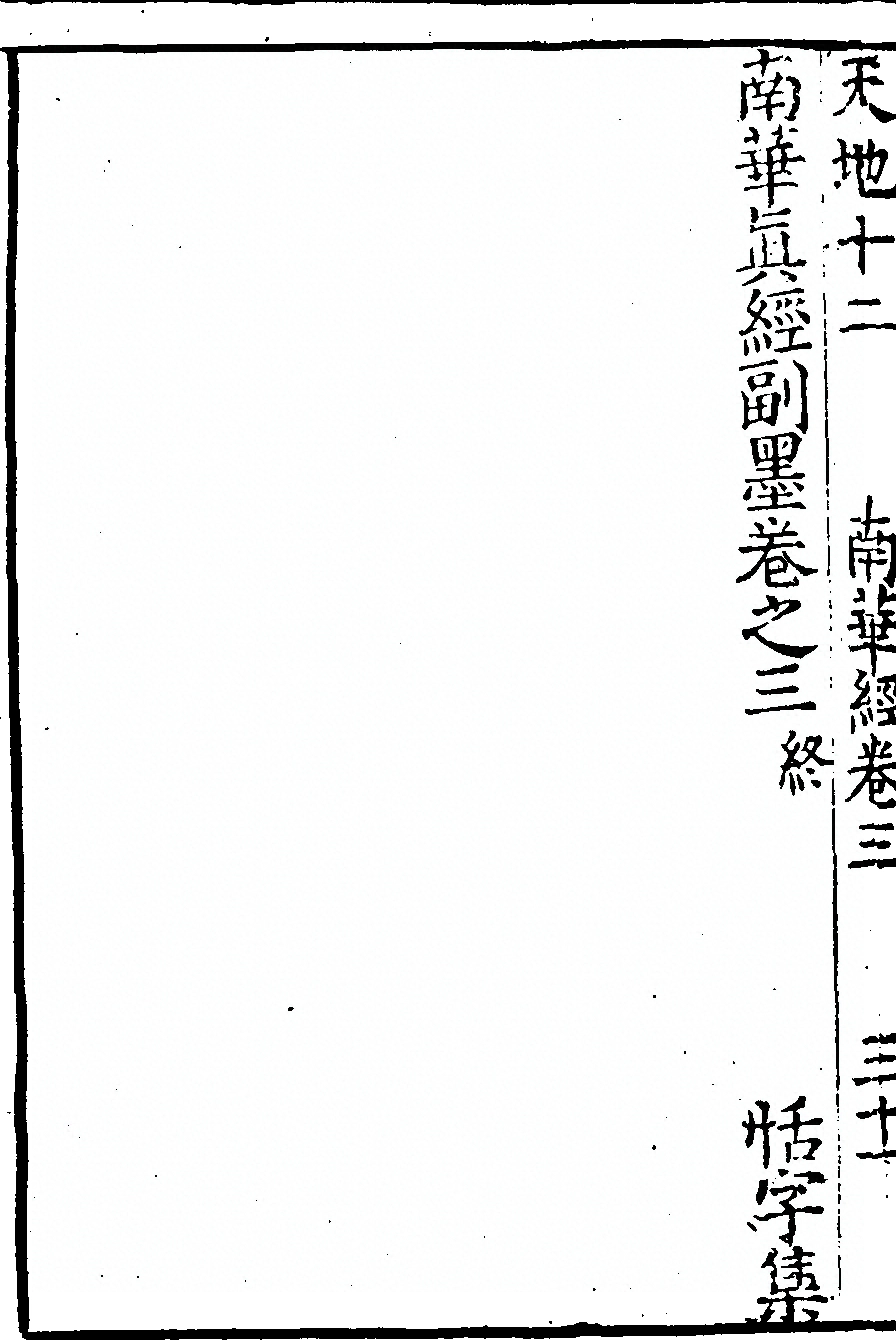 天地十二 南華經卷三 三十一
南華眞經副墨卷之三終 恬字集